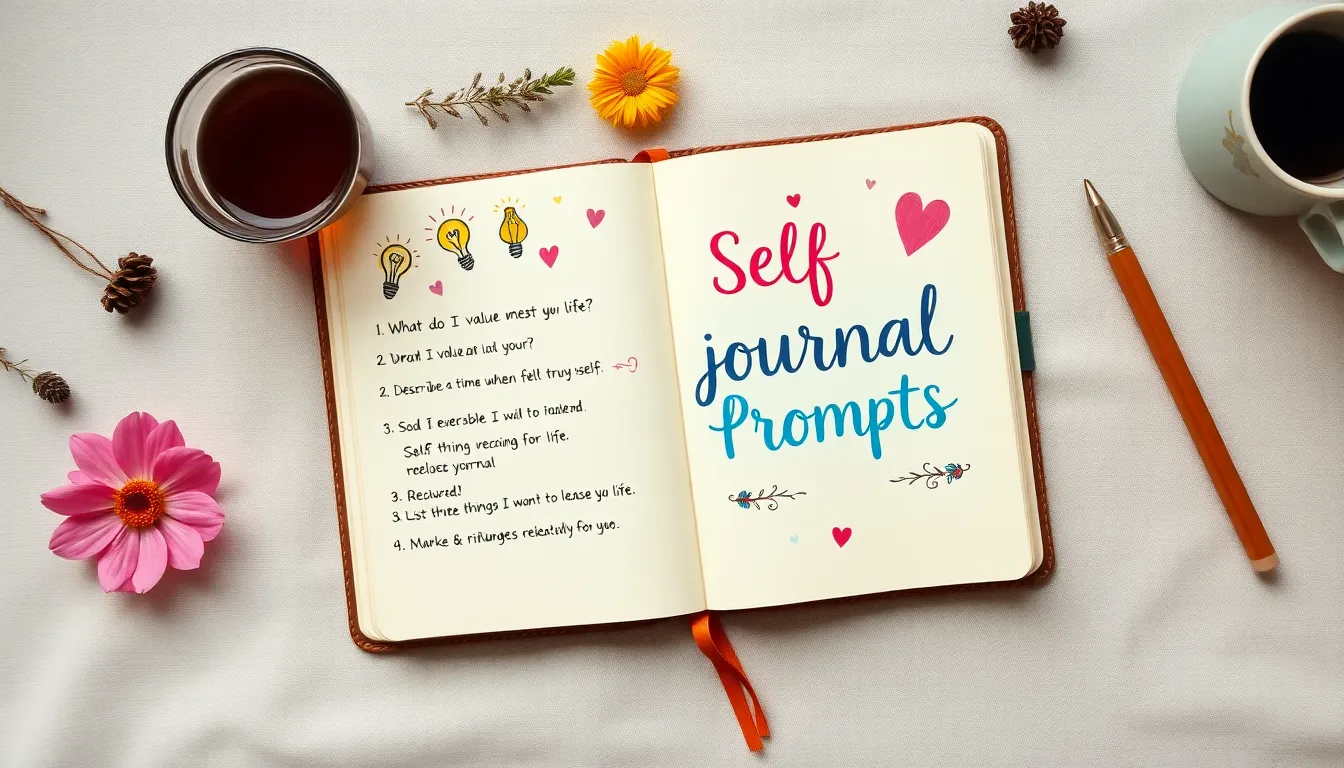 1. What do I value mest you life?
2. I value at lal your?
2. Describe a time when fell truy self.
3. Sod I everable I will to
Self thing recoing for life.
yornal
3. Reclured!
3. List three things I want to lease yo life.
4. Marke & for you.
Self
journal
Prompts